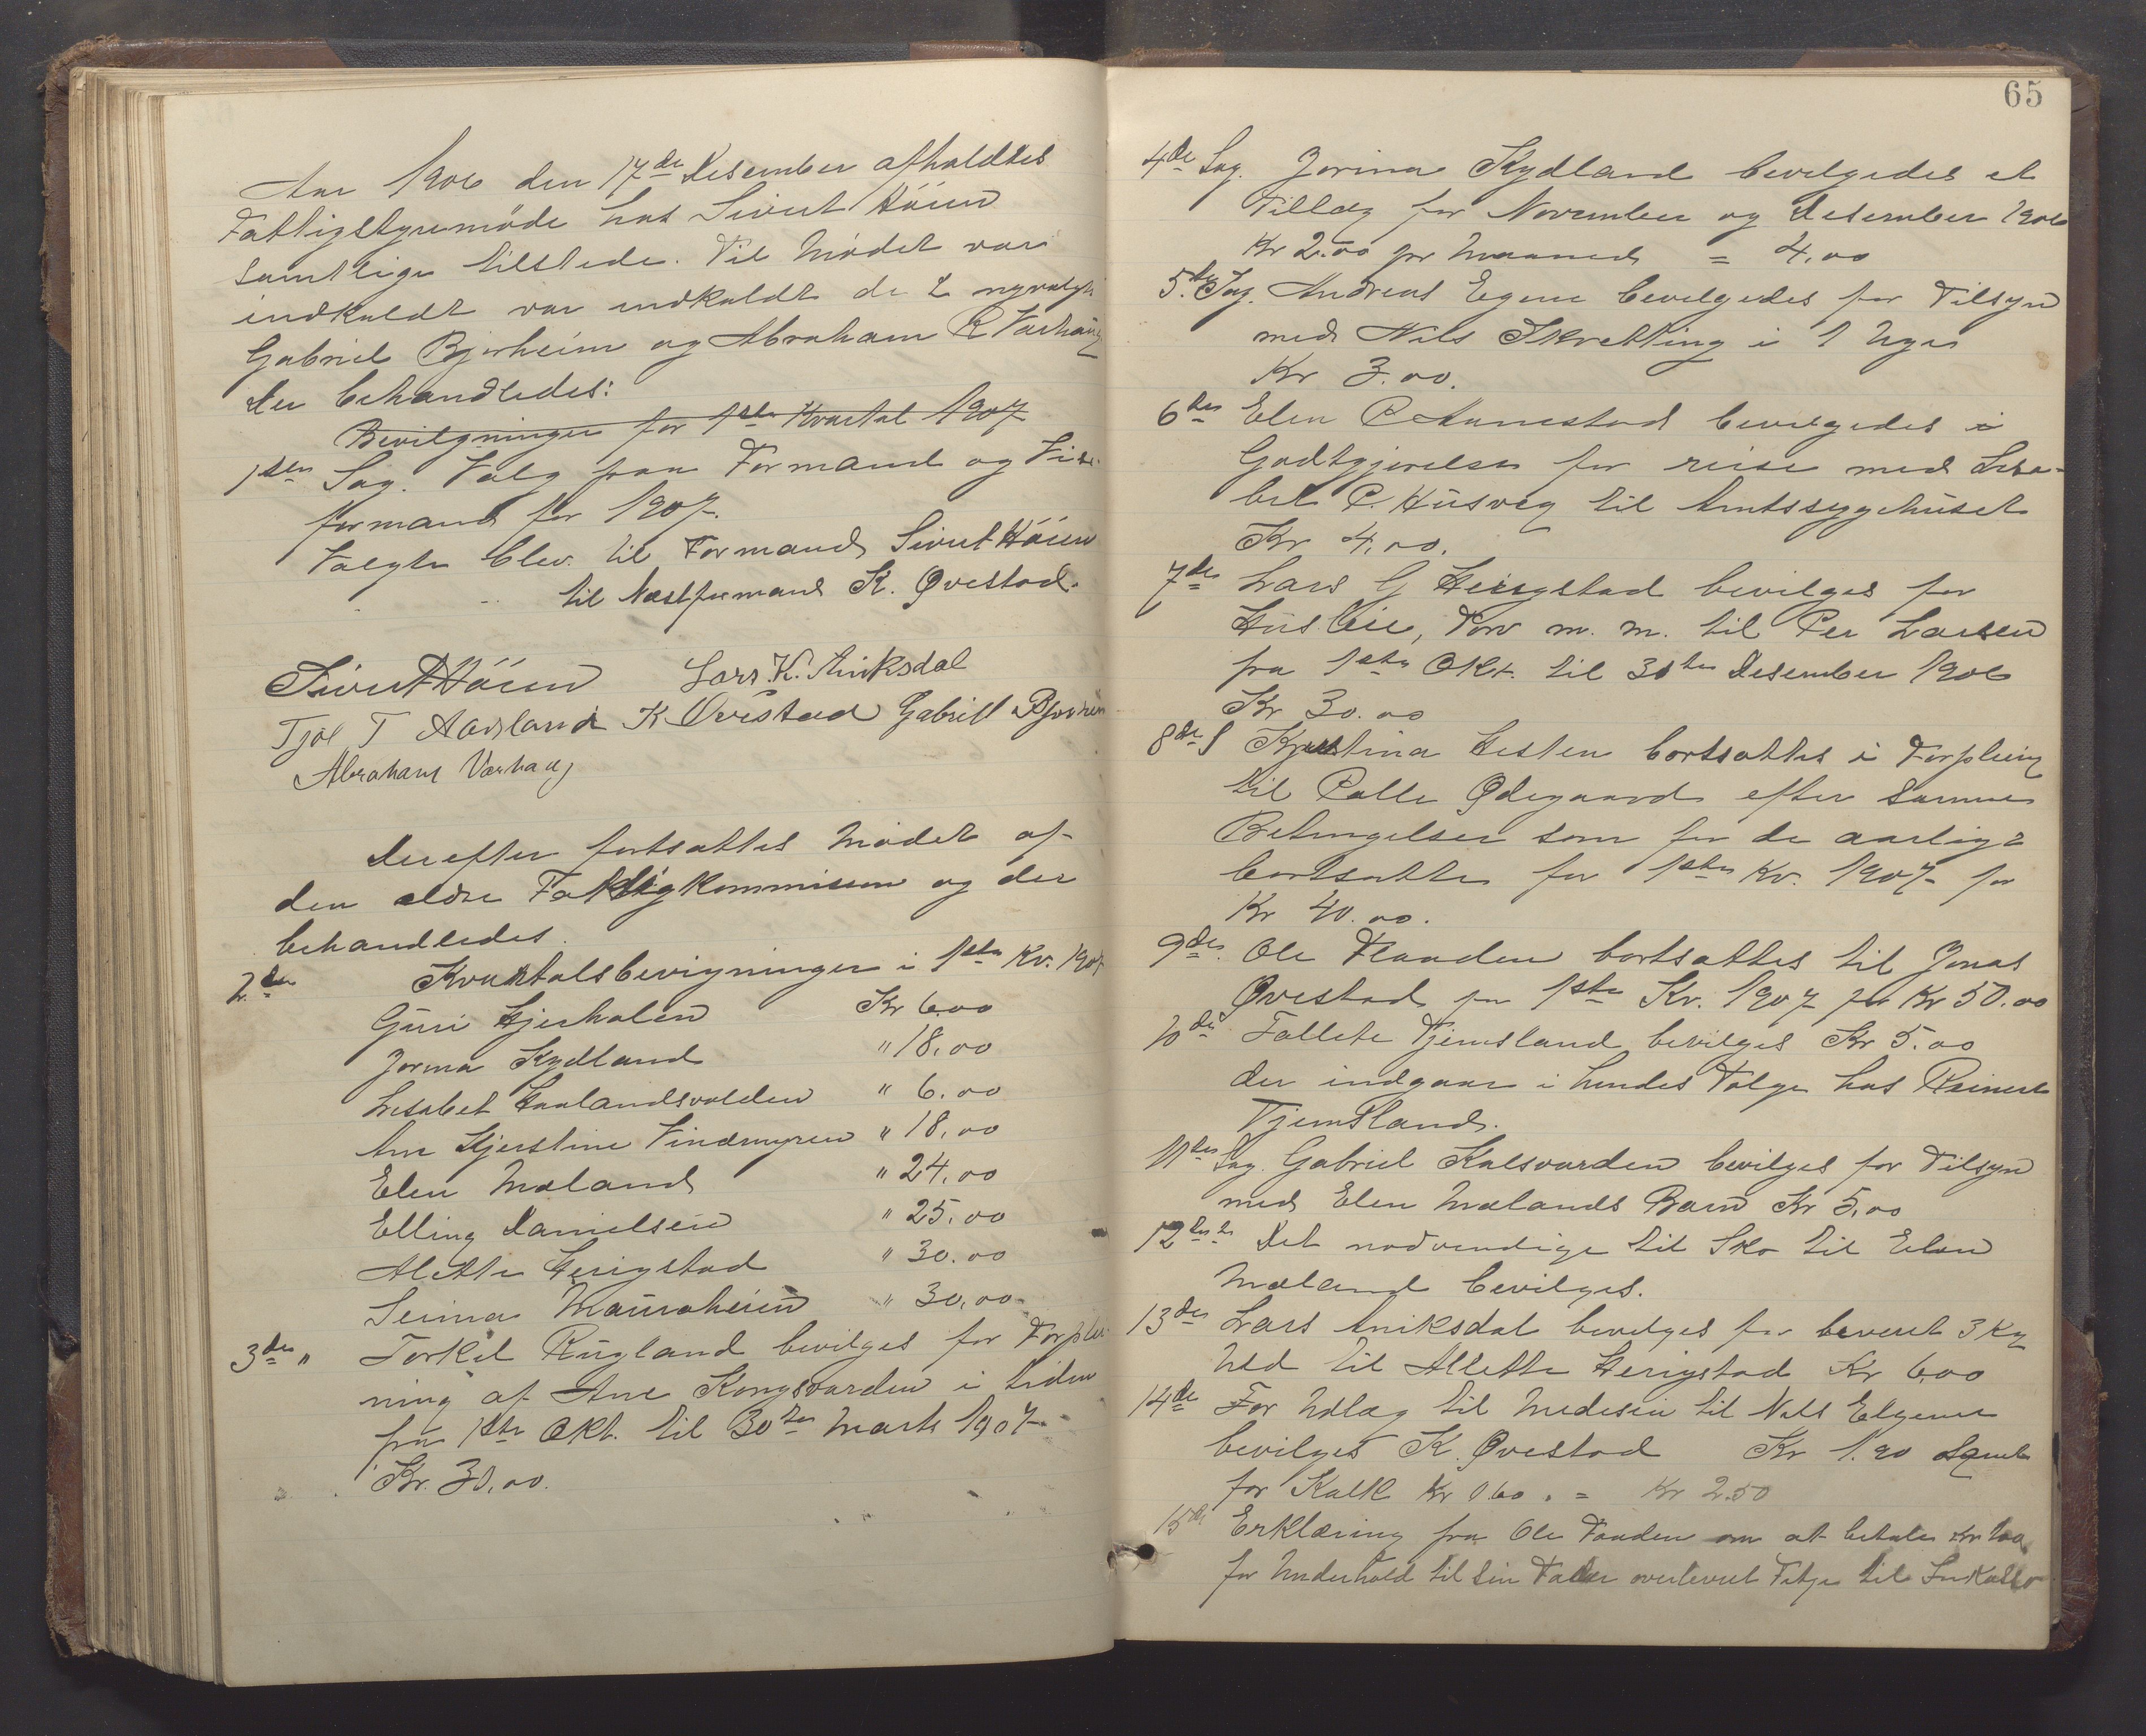 Aar 1906 den 17de Desember afholdtes
Fattigstyremöde hos Sivert Höien
samtlige tilstede. Til Mødet var
indkaldt var indkaldt de 2 nyvalgte
Gabriel Bjorheim og Abraham R Varhaug
der behandledes:
Bevilgninger for 1ste Kvartal 1907
1ste Sag. Valg paa Formand og Vise-
formand for 1907.
Valgte blev til Formand Sivert Höien
til Næstformand K. Øvestad.
Sivert Höien Lars K. Aniksdal
T Aarsland K Øvestad Gabriel Bjorheim
Abraham Varhaug
Derefter fortsattes Mødet af
den ældre Fattigkommission og der
behandledes.
2den Kvartalsbevigninger i 1ste Kv. 1907
Guri Hjerholen Kr 6.00
Jorina Kydland " 18.00
Lisabet Haalandsvolden " 6.00
Ane Kjerstine Vindmyren " 18.00
Elen Mæland " 24.00
Elling Danielsen " 25.00
Alette Herigstad " 30.00
Serina Mauraheien " 30.00
3die " Torkel Rugland bevilges for Forplei
ning af Ane Kongsvarden i tiden
fra 1ste Okt. til 30te Marts 1907
Kr. 30.00.
65
4de Sag. Jorina Kydland bevilgedes et
Tillæg for November og Desember 1906
Kr 2.00 pr Maaned = 4.00
5te Sag. Andreas Egene bevilgedes for Tilsyn
med Nils Skretting i 1 Uge
Kr 3.00.
6te Elen P Aanestad bevilgedes i
Godtgjørelse for reise med Lisa-
bet P. Husveg til Amtssygehuset
Kr 4.00.
7de Lars G Herigstad bevilges for
Husleie, Torv m. m. til Per Larsen
fra 1ste Okt. til 30te Desember 1906
Kr 30.00
8de S Kristina Hesten bortsattes i Forpleing
til Palle Ødegaard efter samme
Betingelser som for de aarlige
bortsatte for 1ste Kv. 1907 for
Kr 40.00.
9de. Ole Flaaden bortsattes til Jonas
Øvestad for 1ste Kv. 1907 for Kr 50.00
10de Tollete Tjemsland bevilges Kr 5.00
der indgaar i hendes Følge hos Reinert
Tjemsland.
11te Sag. Gabriel Kalsvarden bevilges for Tilsyn
med Elen Mælands Barn Kr 5.00
12te Det nødvendige til Sko til Elen
Mæland bevilges.
13de Lars Aniksdal bevilges for leveret 3 Kg
Uld til Allette Herigstad Kr 6.00
14de For Udlæg til Medesin til Nils
bevilges K. Øvestad Kr 1.90 samt
for Kalk Kr 0.60. = Kr 2.50
15de Erklæring fra Ole om at betale Kr
for Underhold til sin Fader overleveret til Inkasso